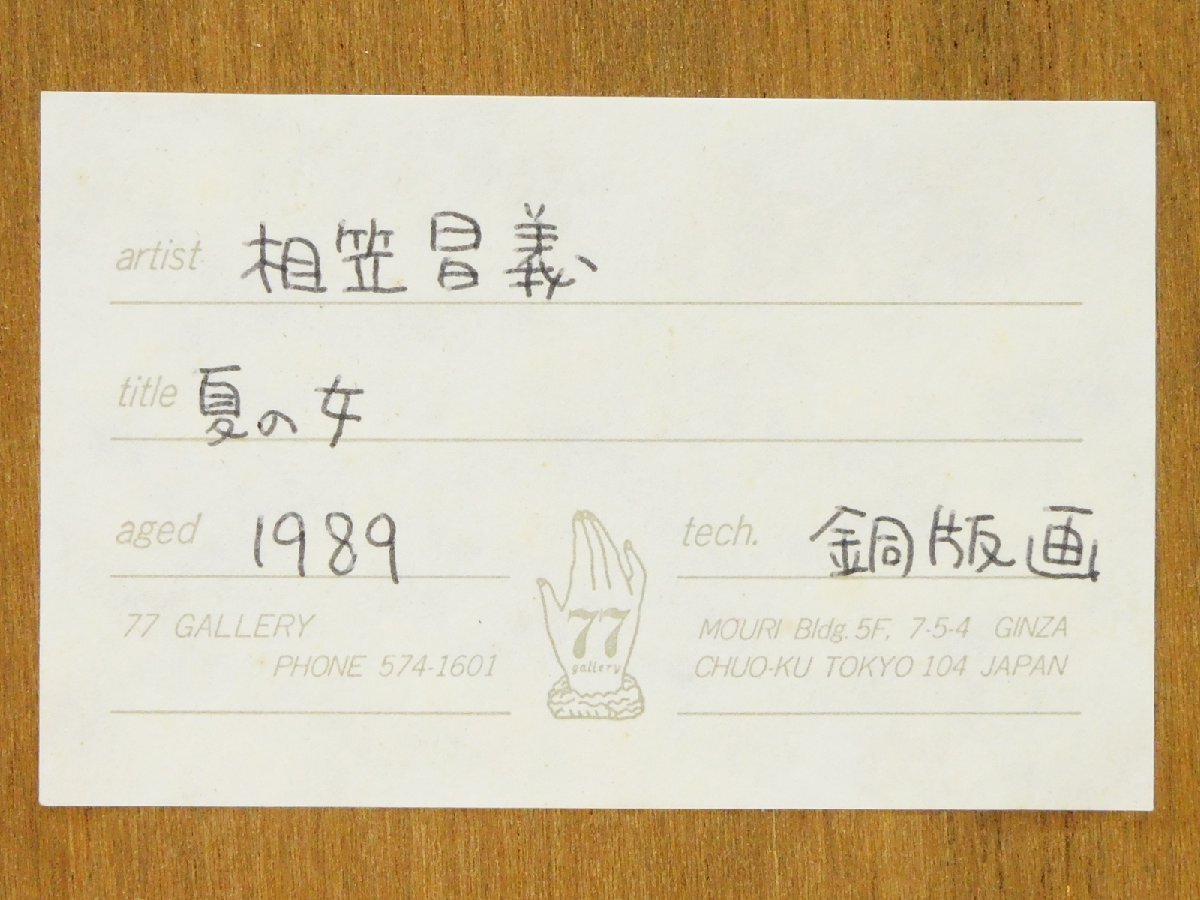 artist 相笠昌義
title 夏の女
aged 1989
tech. 銅版画
77 GALLERY
PHONE 574-1601
77
gallery
MOURI Bldg. 5F, 7-5-4 GINZA
CHUO-KU TOKYO 104 JAPAN